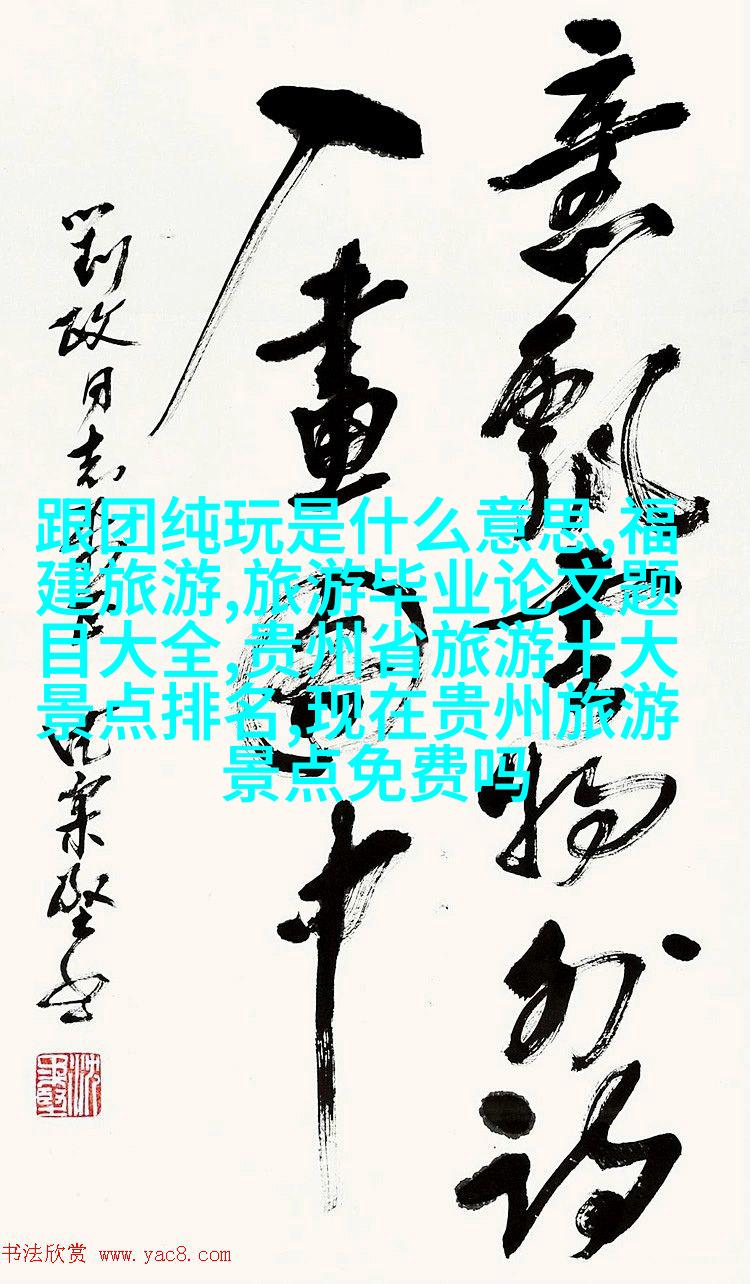 意飄雲物外詩
入畫圖中
劉政同志
跟团纯玩是什么意思,福
建旅游,旅游毕业论文题
目大全,贵州省旅游十大
景点排名,现在贵州旅游
景点免费吗
书法欣赏 www.yac8.com